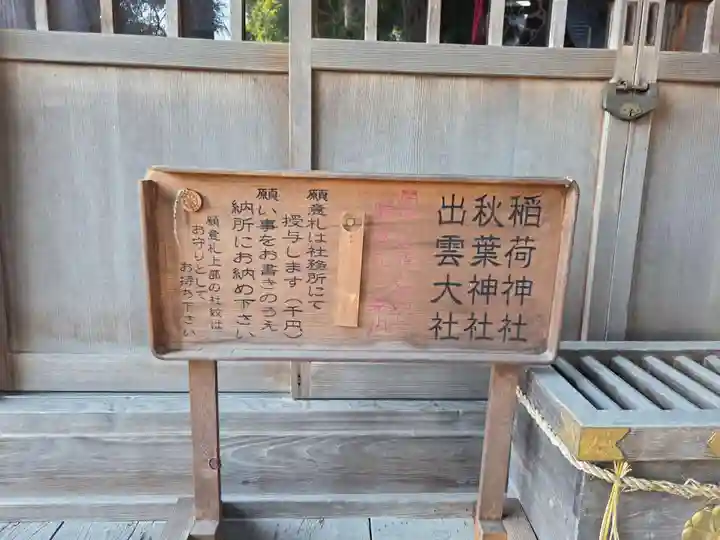 稲荷神社
秋葉神社
出雲大社
願意札は社務所にて
授与します（千円）
願い事をお書きのうえ
納所にお納め下さい
願意札上部の社紋は
お守りとして
お持ち下さい